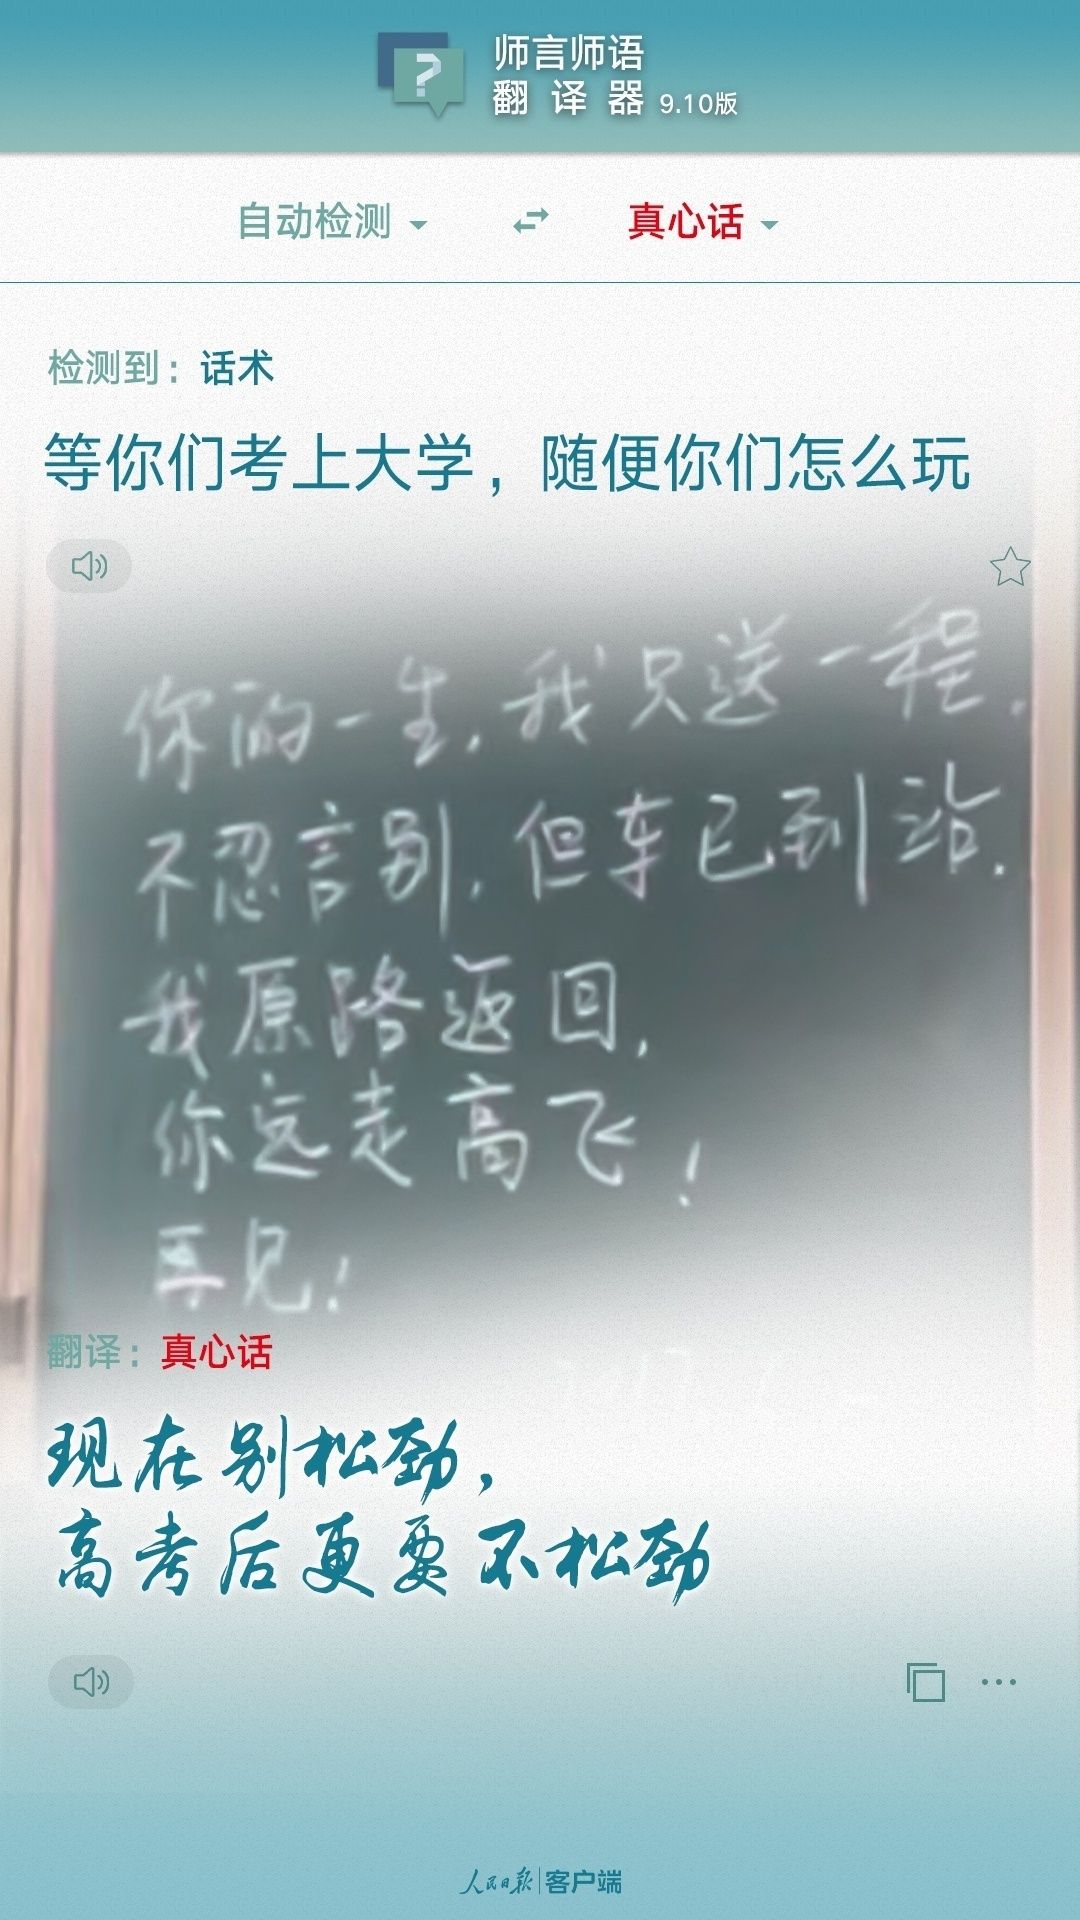 师言师语
翻译器 9.10版
自动检测
真心话
检测到：话术
等你们考上大学，随便你们怎么玩
你的一生，我只送一程，
不忍言别，但车已到站．
我原路返回，
你远走高飞！
再见！
翻译：真心话
现在别松劲，
高考后更要不松劲
人民日报|客户端